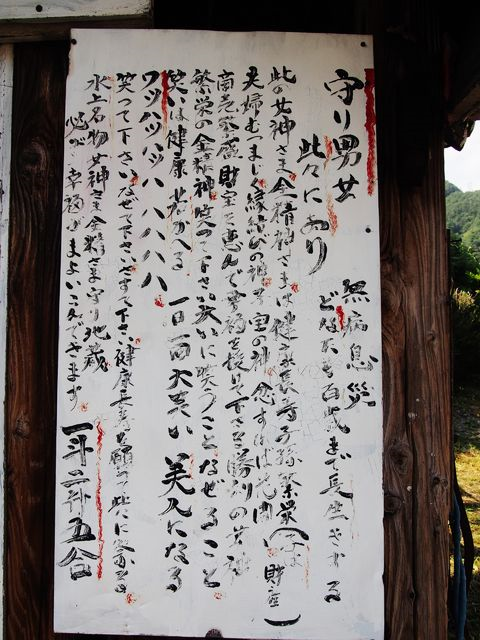 守り男女 無病息災
此々にあり どなたも百歳まで長生きする
此の女神さま金精神さまは健康長寿子孫繁栄
夫婦むつまじく縁結びの神子宝の神念ずれば花開く財産
商売繁盛財宝を恵んで幸福を授け下さる勝利の女神
繁栄の金精神笑って下さい大いに笑うことなぜること
笑いは健康若がへる 一日一回大笑い 美人になる
ワッハッハッハハハハハ
笑って下さいなぜて下さいさすって下さい健康長寿を願って此々に祭る
水上名物女神さま金精さま守り地蔵
必ず幸福がまよいこんできます 一斗二升五合